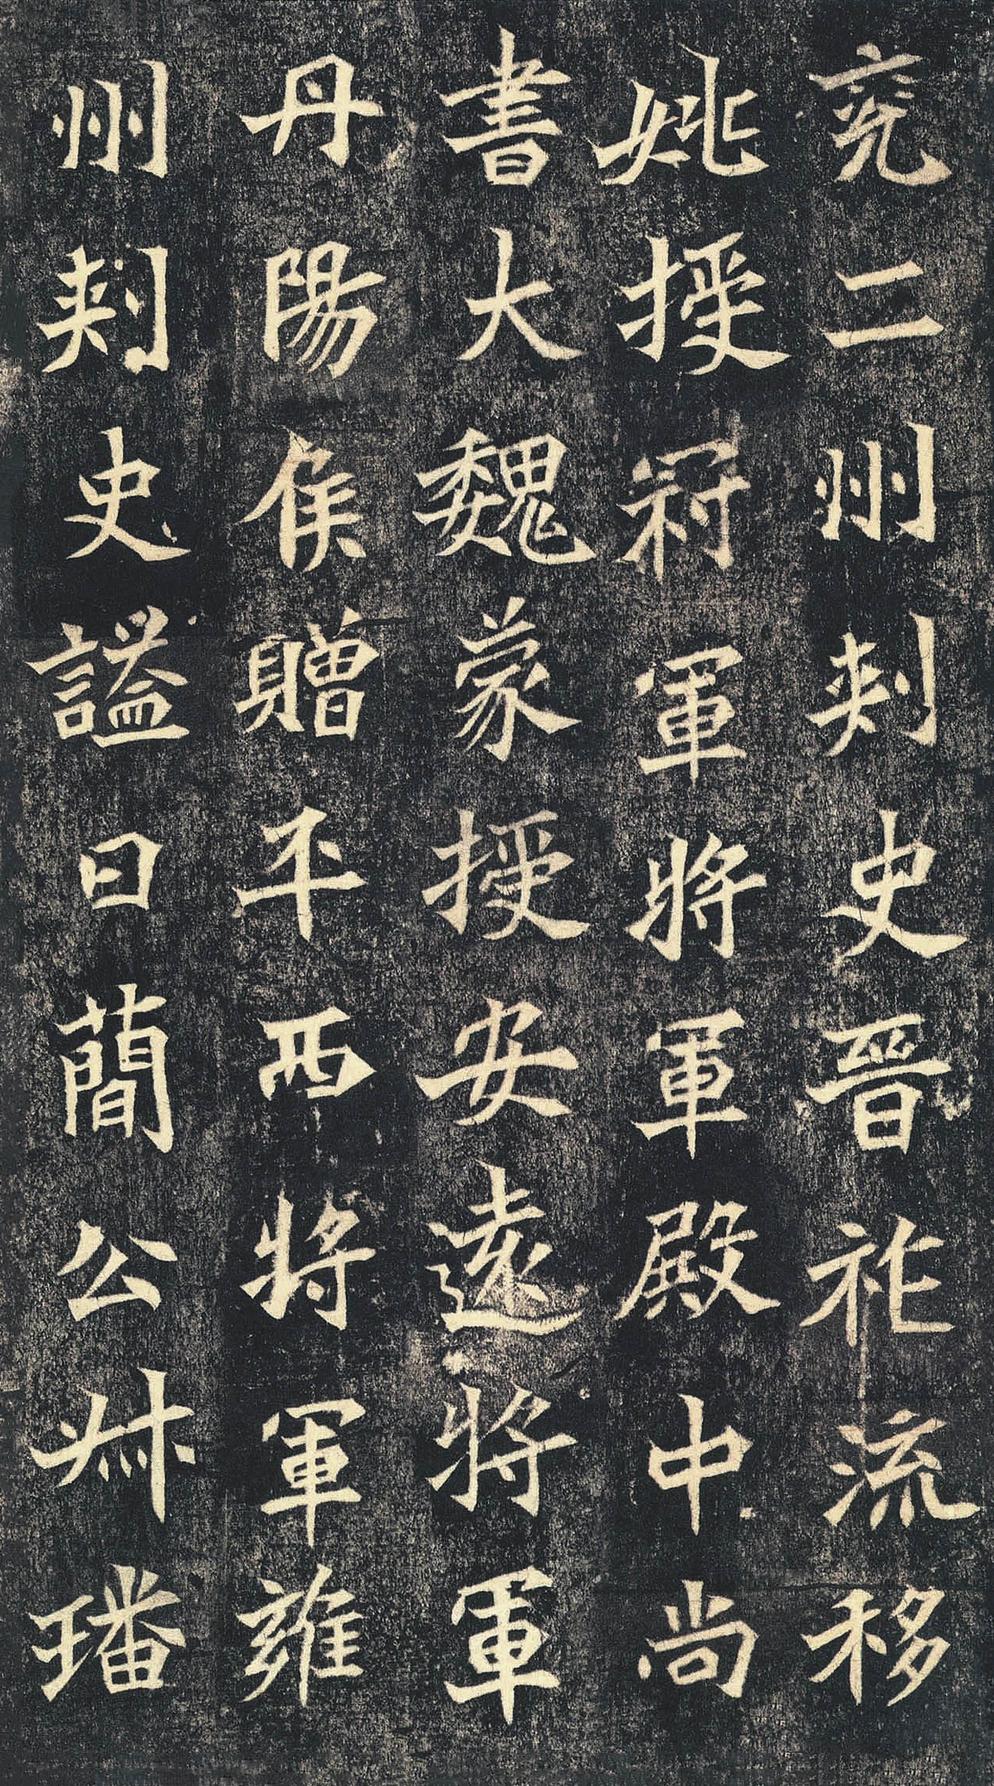 兖二州刾史晉祚流移
姚授冠軍將軍殿中尚
書大魏蒙授安遠將軍
丹陽侯贈平西將軍雍
州刾史謚曰蕳公叔璠